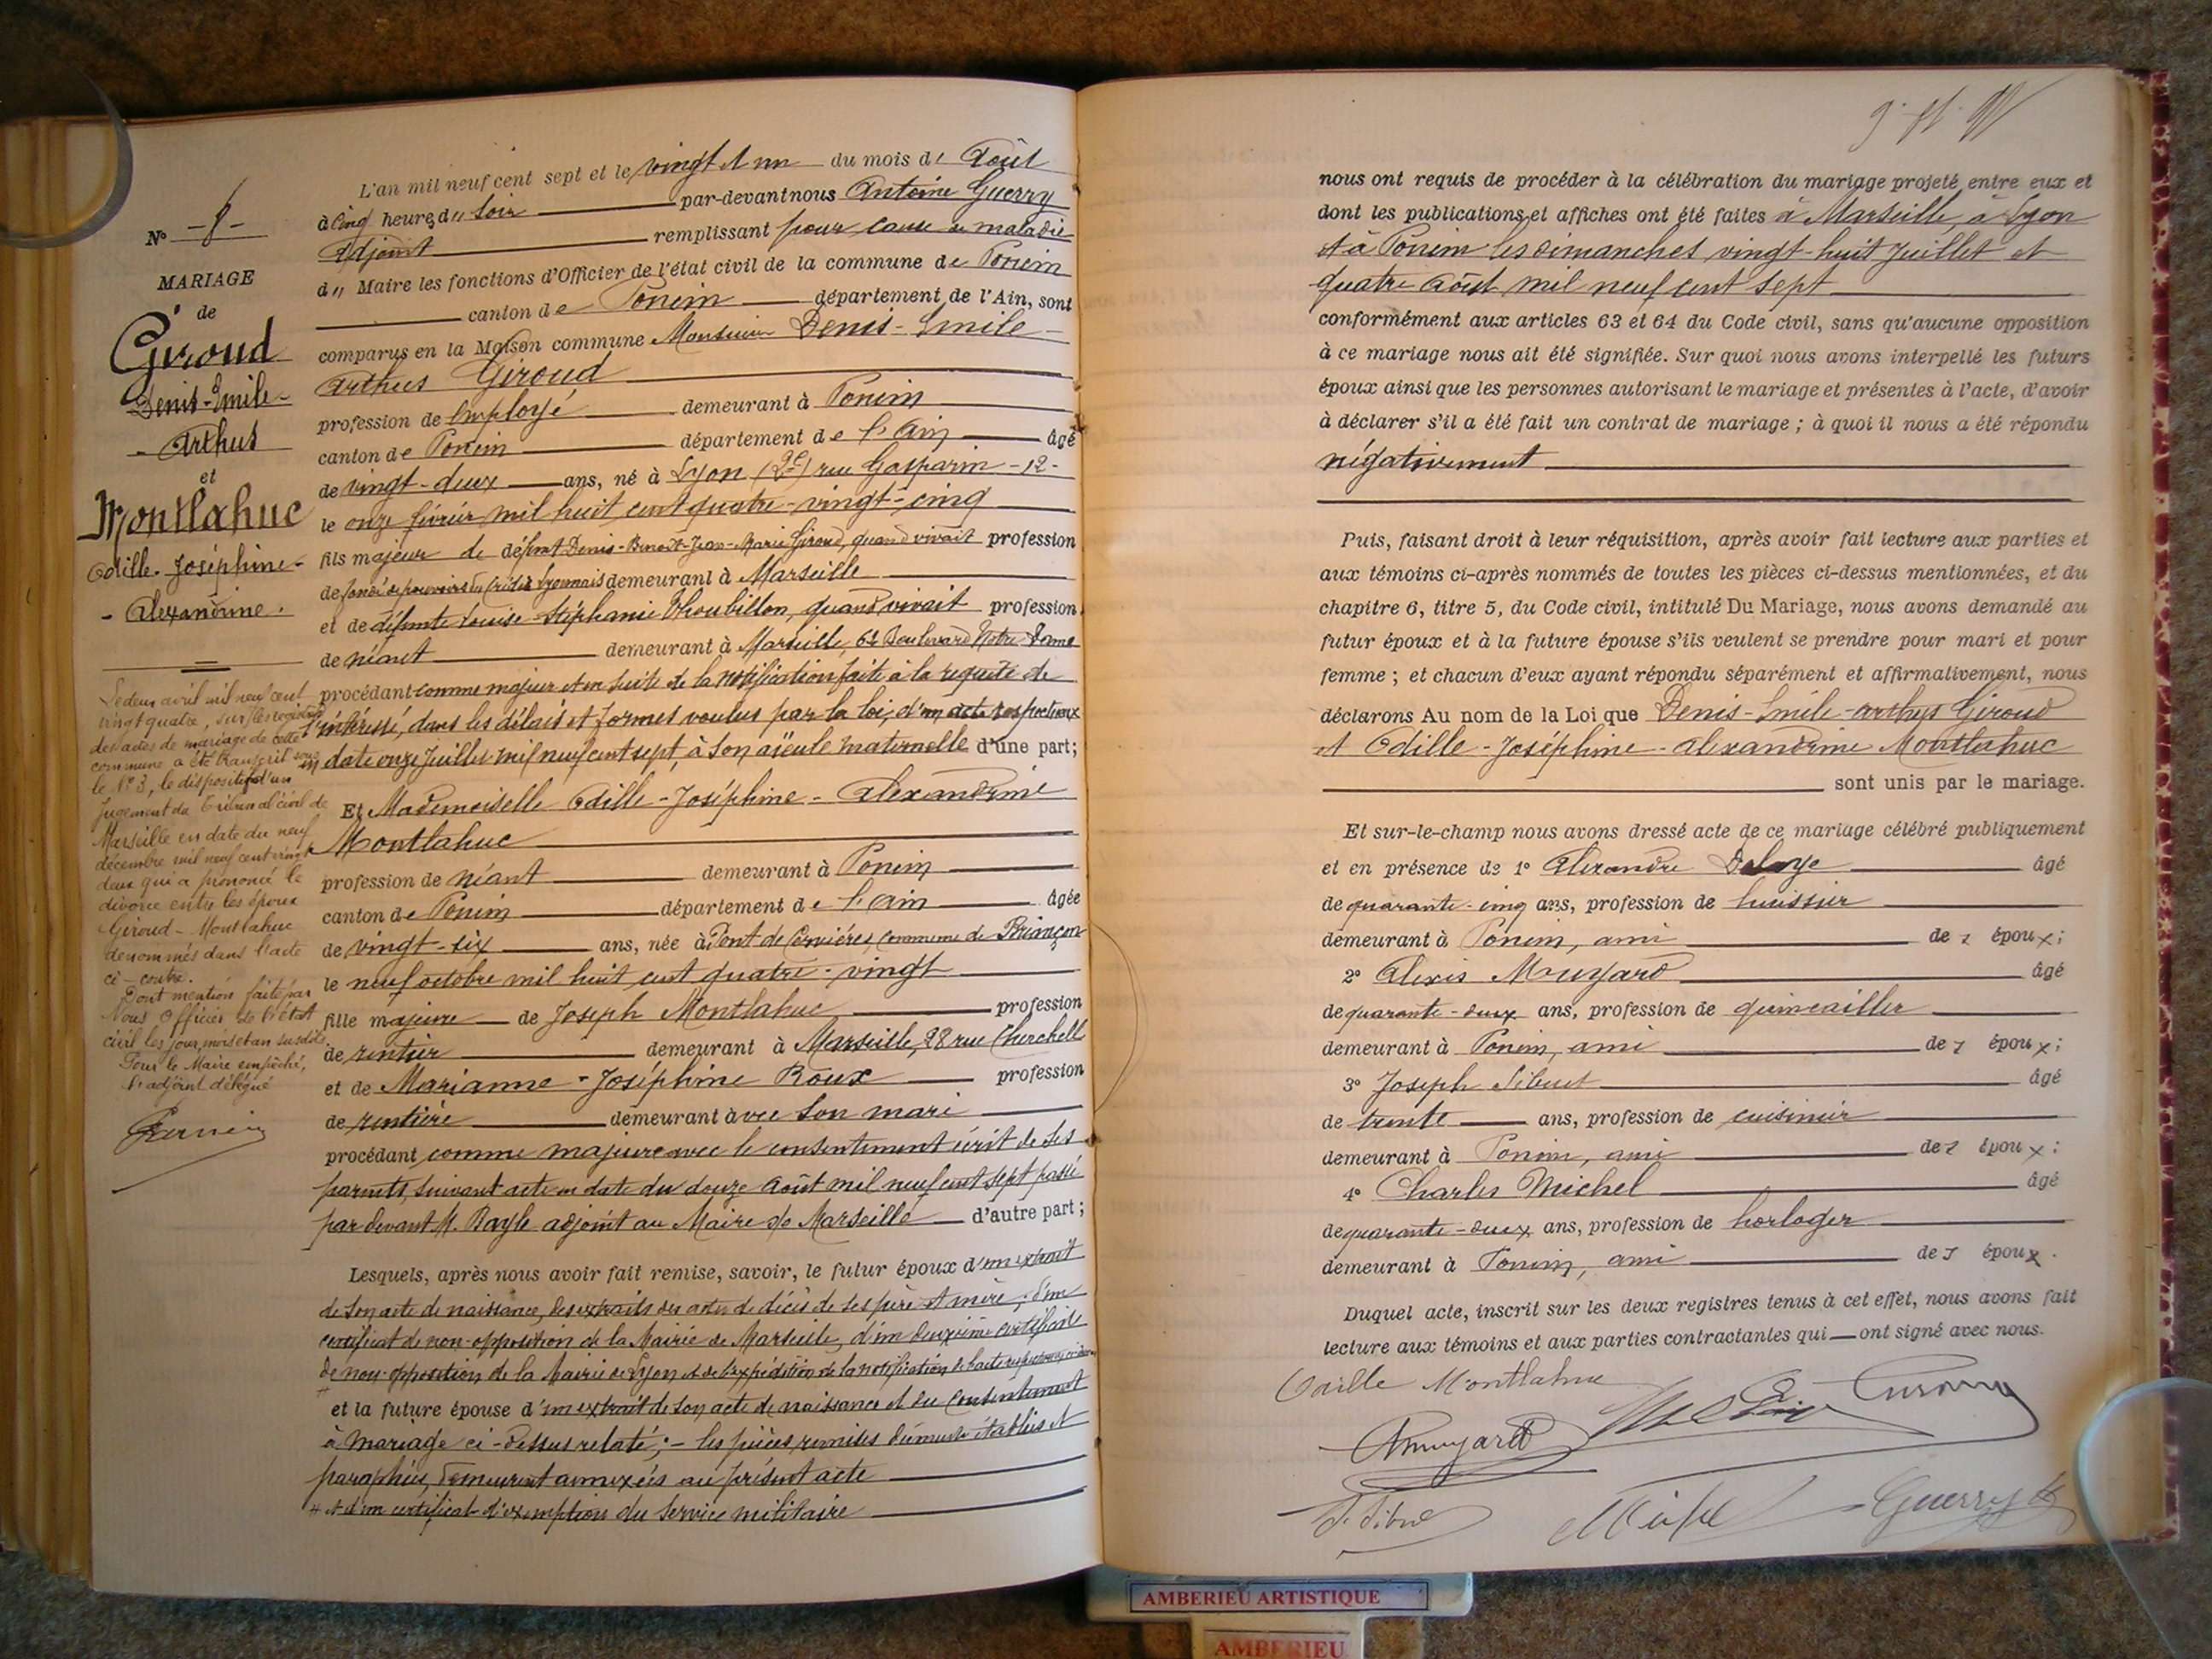 N° -8-
MARIAGE
de
Giroud
Denis-Emile-
-Arthus
et
Montlahuc
Odille-Joséphine-
-Alexandrine.
Le deux avril mil neuf cent
vingt quatre, sur les registres
des actes de mariage de cette
commune a été transcrit sous
le N° 3, le dispositif d'un
Jugement du Tribunal civil de
Marseille en date du neuf
décembre mil neuf cent vingt
deux qui a prononcé le
divorce entre les époux
Giroud-Montlahuc
dénommés dans l'acte
ci-contre.
Dont mention faite par
Nous Officier de l'état
civil les jour, mois et an susdits.
Pour le Maire empêché,
L'adjoint délégué
L'an mil neuf cent sept et le vingt et un du mois de Août
à cinq heures du soir par-devant nous Antoine Guerry
Adjoint remplissant pour cause de maladie
du Maire les fonctions d'Officier de l'état civil de la commune de Poncin
canton de Poncin département de l'Ain, sont
comparus en la Maison commune Monsieur Denis-Emile-
Arthus Giroud
profession de Employé demeurant à Poncin
canton de Poncin département de l'Ain âgé
de vingt-deux ans, né à Lyon (2e) rue Gasparin -12-
le onze février mil huit cent quatre-vingt-cinq
fils majeur de défunt Denis-Benoît-Jean-Marie Giroud, quand vivait profession
de fondé de pouvoirs du Crédit Lyonnais demeurant à Marseille
et de défunte Louise-Stéphanie Thoubillon, quand vivait profession
de néant demeurant à Marseille, 62 Boulevard Notre-Dame
procédant comme majeur et en suite de la notification faite à la requête de
l'intéressé, dans les délais et formes voulus par la loi, d'un acte respectueux
en date onze Juillet mil neuf cent sept, à son aïeule maternelle d'une part;
Et Mademoiselle Odille-Joséphine-Alexandrine
Montlahuc
profession de néant demeurant à Poncin
canton de Poncin département de l'Ain âgée
de vingt-six ans, née à Pont de Cervières, commune de Briançon
le neuf octobre mil huit cent quatre-vingt
fille majeure de Joseph Montlahuc profession
de rentier demeurant à Marseille, 28 rue Cherchell
et de Marianne-Joséphine Roux profession
de rentière demeurant avec son mari
procédant comme majeure avec le consentement écrit de ses
parents, suivant acte en date du douze août mil neuf cent sept passé
par devant M. Bayle adjoint au Maire de Marseille d'autre part;
Lesquels, après nous avoir fait remise, savoir, le futur époux d'un extrait
de son acte de naissance, des extraits des actes de décès de ses père et mère; d'un
certificat de non-opposition de la Mairie de Marseille, d'un deuxième certificat
de non-opposition de la Mairie de Lyon et de l'expédition de la notification de l'acte respectueux
et la future épouse d'un extrait de son acte de naissance et du consentement
à mariage ci-dessus relaté;- les pièces remises dûment établies et
paraphées, demeurent annexées au présent acte
# et d'un certificat d'exemption du service militaire
nous ont requis de procéder à la célébration du mariage projeté entre eux et
dont les publications et affiches ont été faites à Marseille, à Lyon
et à Poncin les dimanches vingt-huit Juillet et
quatre août mil neuf cent sept
conformément aux articles 63 et 64 du Code civil, sans qu'aucune opposition
à ce mariage nous ait été signifiée. Sur quoi nous avons interpellé les futurs
époux ainsi que les personnes autorisant le mariage et présentes à l'acte, d'avoir
à déclarer s'il a été fait un contrat de mariage ; à quoi il nous a été répondu
négativement
Puis, faisant droit à leur réquisition, après avoir fait lecture aux parties et
aux témoins ci-après nommés de toutes les pièces ci-dessus mentionnées, et du
chapitre 6, titre 5, du Code civil, intitulé Du Mariage, nous avons demandé au
futur époux et à la future épouse s'ils veulent se prendre pour mari et pour
femme ; et chacun d'eux ayant répondu séparément et affirmativement, nous
déclarons Au nom de la Loi que Denis-Emile-Arthus Giroud
et Odille-Joséphine-Alexandrine Montlahuc
sont unis par le mariage.
Et sur-le-champ nous avons dressé acte de ce mariage célébré publiquement
et en présence de 1° Alexandre Delaye âgé
de quarante-cinq ans, profession de huissier
demeurant à Poncin, ami des époux;
2° Alexis Muyard âgé
de quarante-deux ans, profession de quincailler
demeurant à Poncin, ami des époux;
3° Joseph Sibuet âgé
de trente ans, profession de cuisinier
demeurant à Poncin, ami des époux;
4° Charles Michel âgé
de quarante-deux ans, profession de horloger
demeurant à Poncin, ami des époux.
Duquel acte, inscrit sur les deux registres tenus à cet effet, nous avons fait
lecture aux témoins et aux parties contractantes qui ont signé avec nous.
Odille Montlahuc
AMuyard
J. Sibuet
Guerry
AMBERIEU ARTISTIQUE
AMBERIEU